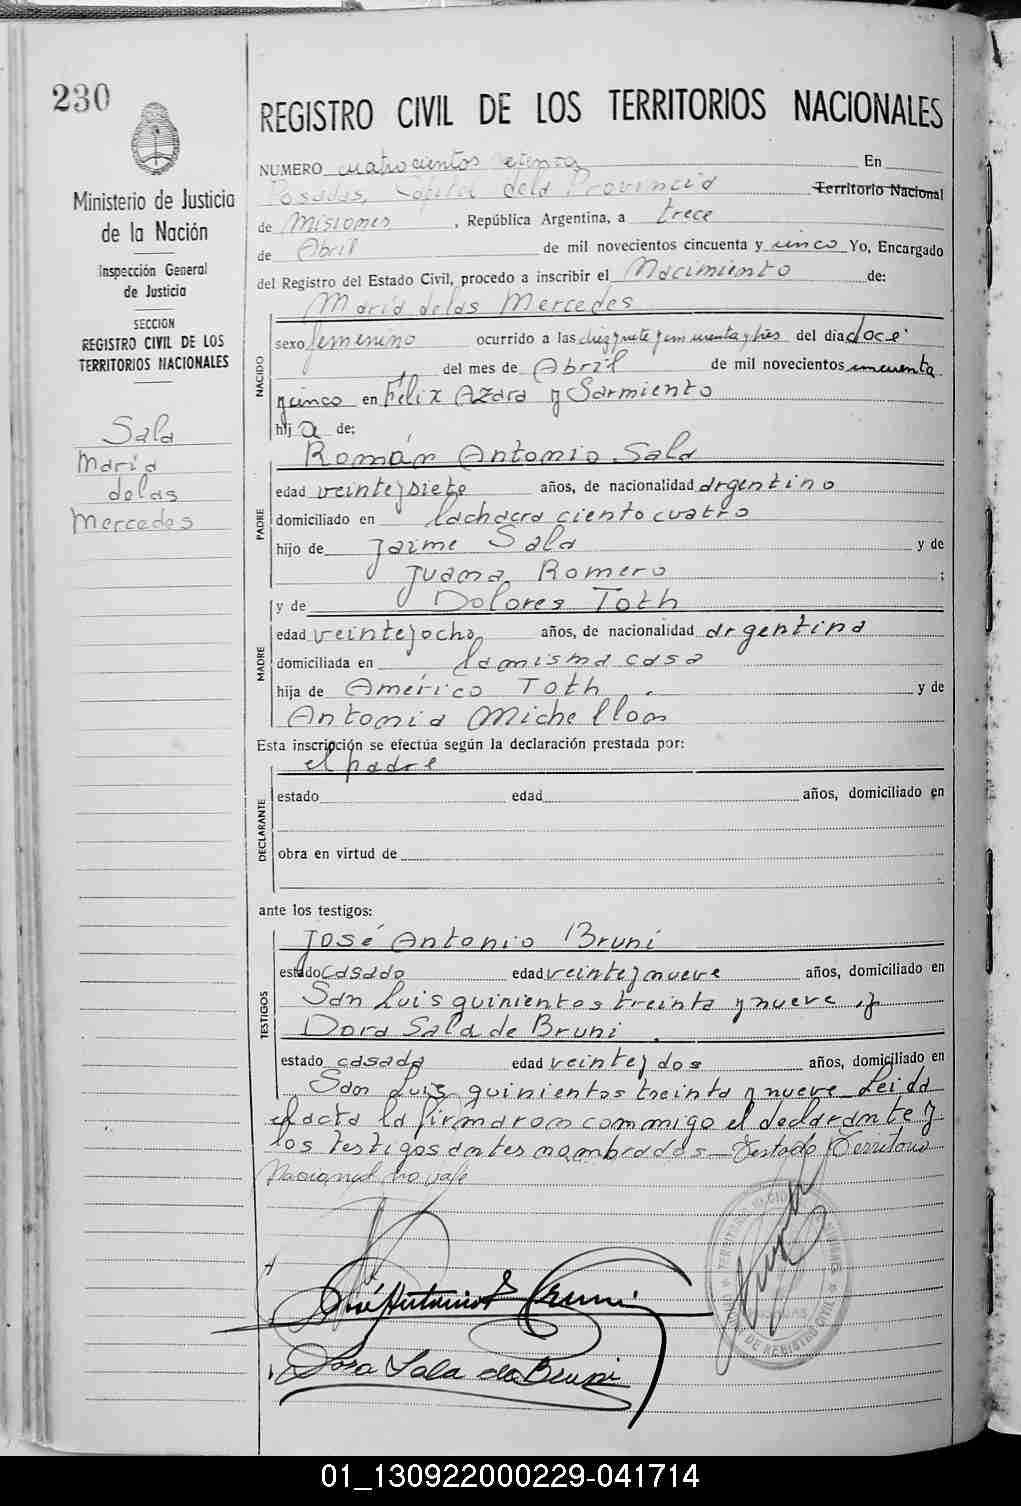 230
REGISTRO CIVIL DE LOS TERRITORIOS NACIONALES
Ministerio de Justicia
de la Nación
Inspección General
de Justicia
SECCION
REGISTRO CIVIL DE LOS
TERRITORIOS NACIONALES
Sala
Maria
delas
Mercedes
NUMERO cuatrocientos En
Posadas, Capital dela Provincia Territorio Nacional
de Misiones, República Argentina, a trece
de Abril de mil novecientos cincuenta y cinco Yo, Encargado
del Registro del Estado Civil, procedo a inscribir el Nacimiento de:
Maria delas Mercedes
NACIDO
sexo femenino ocurrido a las diez y siete y cincuenta y tres del día doce
del mes de Abril de mil novecientos cincuenta
y cinco en Félix Azara y Sarmiento
hija de:
Román Antonio Sala
PADRE
edad veinte y siete años, de nacionalidad argentino
domiciliado en lachacra ciento cuatro
hijo de Jaime Sala y de
Juana Romero ;
y de Dolores Toth
MADRE
edad veinte y ocho años, de nacionalidad argentina
domiciliada en la misma casa
hija de Américo Toth y de
Antonia Michellon
Esta inscripción se efectúa según la declaración prestada por:
el padre
DECLARANTE
estado edad años, domiciliado en
obra en virtud de
ante los testigos:
José Antonio Bruni
TESTIGOS
estado casado edad veinte y nueve años, domiciliado en
San Luis quinientos treinta y nueve y
Dora Sala de Bruni
estado casada edad veinte y dos años, domiciliado en
San Luis quinientos treinta y nueve Leida
el acta la firmaron conmigo el declarante y
los testigos antes nombrados— Testado Territorio
Nacional no vale
José Antonio Bruni
Dora Sala de Bruni
01_130922000229-041714